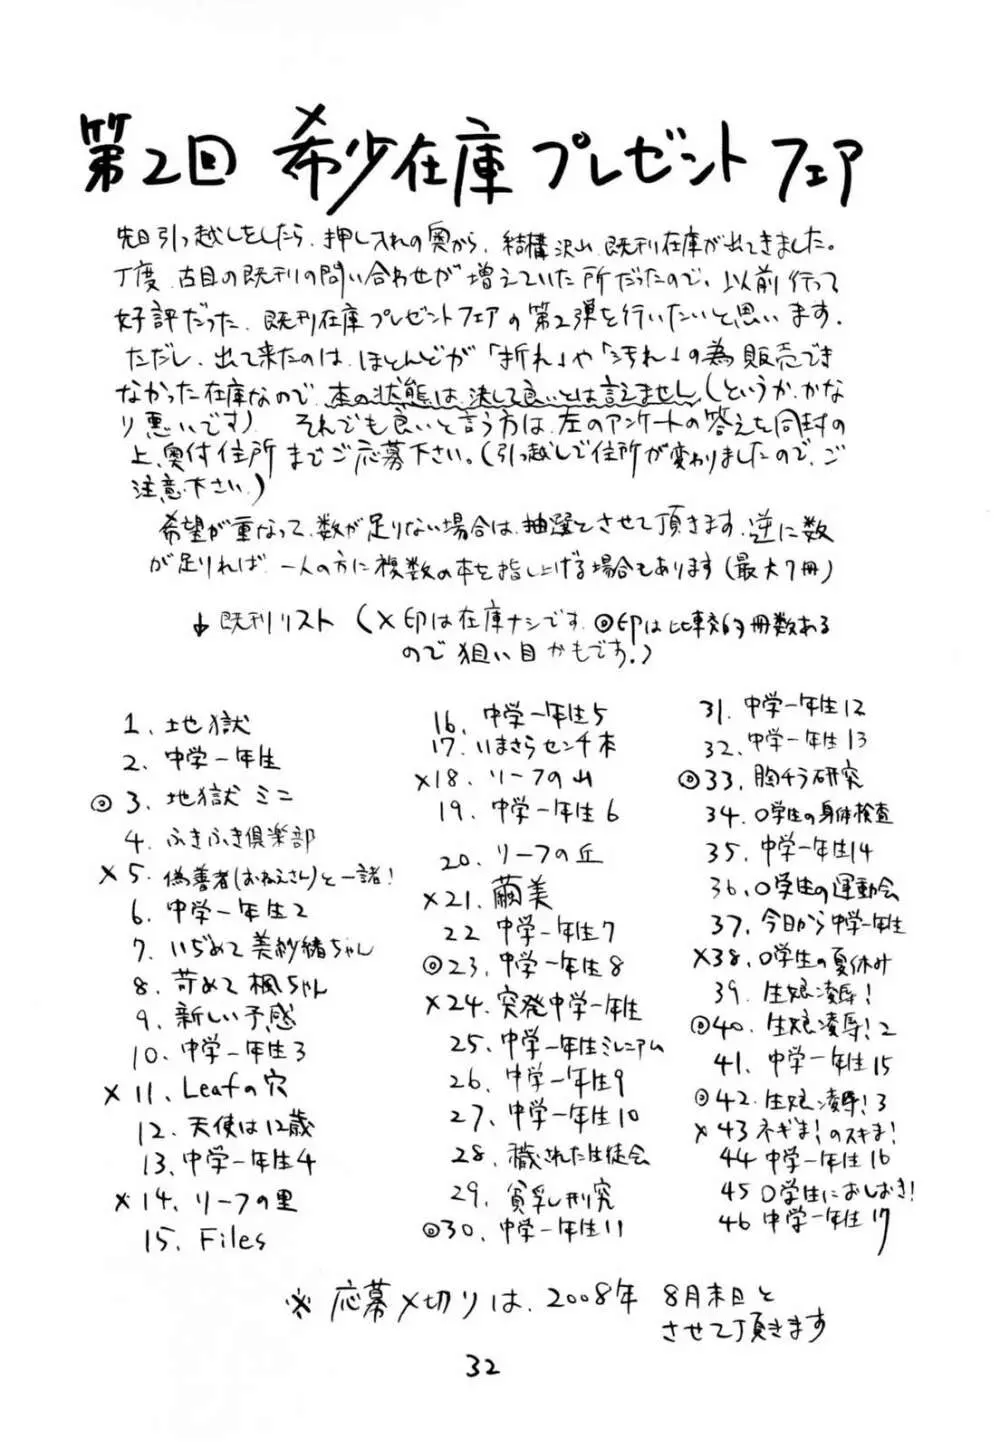 第2回 希少在庫プレゼントフェア
先日引っ越しをしたら、押し入れの奥から、結構沢山既刊在庫が出てきました。
丁度、古目の既刊の問い合わせが増えていた所だったので、以前行って
好評だった、既刊在庫プレゼントフェアの第2弾を行いたいと思います。
ただし、出て来たのは、ほとんどが「折れ」や「汚れ」の為販売でき
なかった在庫なので、本の状態は、決して良いとは言えません。(というか、かな
り悪いです)。それでも良いと言う方は、左のアンケートの答えを同封の
上、奥付住所までご応募下さい。(引っ越しで住所が変わりましたので、ご
注意下さい。)
希望が重なって、数が足りない場合は、抽選とさせて頂きます。逆に数
が足りれば、一人の方に複数の本を差し上げる場合もあります(最大7冊)
↓既刊リスト (×印は在庫ナシです。◎印は比較的冊数ある
ので狙い目かもです。)
1、地獄
2、中学一年生
◎3、地獄ミニ
4、ふきふき倶楽部
×5、偽善者(おねえさん)と一諸!
6、中学一年生2
7、いぢめて美紗緒ちゃん
8、苛めて楓ちゃん
9、新しい予感
10、中学一年生3
×11、Leafの穴
12、天使は12歳
13、中学一年生4
×14、リーフの里
15、Files
16、中学一年生5
17、いまさらセンチ本
×18、リーフの山
19、中学一年生6
20、リーフの丘
×21、繭美
22 中学一年生7
◎23、中学一年生8
×24、突発中学一年生
25、中学一年生ミレニアム
26、中学一年生9
27、中学一年生10
28、穢された生徒会
29、貧乳し研究
◎30、中学一年生11
31、中学一年生12
32、中学一年生13
◎33、胸チラ研究
34、○学生の身体検査
35、中学一年生14
36、○学生の運動会
37、今日から中学一年生
×38、○学生の夏休み
39、生娘凌辱!
◎40、生娘凌辱!2
41、中学一年生15
◎42、生娘凌辱!3
×43 ネギま!のスキま!
44 中学一年生16
45 ○学生におしおき!
46 中学一年生17
※応募〆切りは、2008年 8月末日と
させて頂きます
32